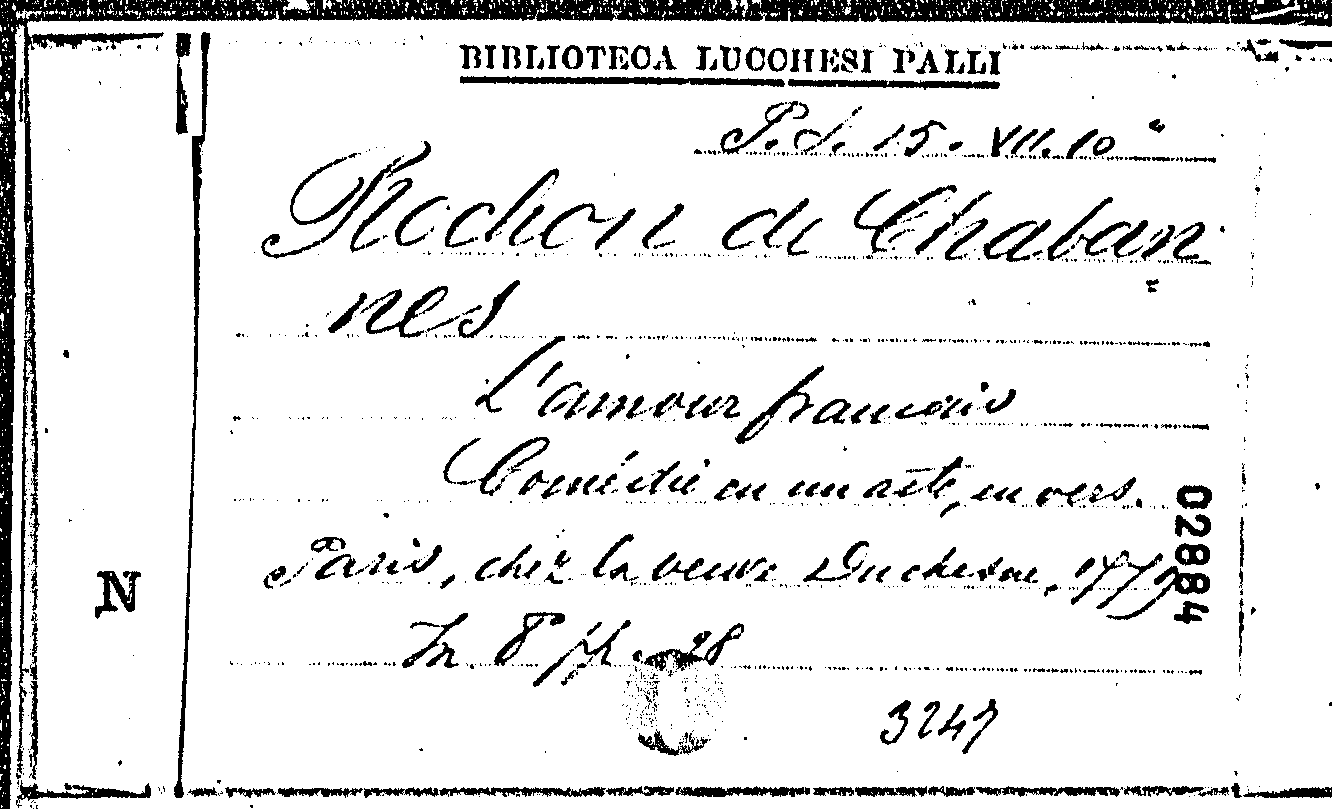 BIBLIOTECA LUCCHESI PALLI
P. S. 15. VII. 10"
Rochon de Chaban=
nes
L'amour francais
Comédie en un acte, en vers.
Paris, chez la veuve Duchesne, 1779
In 8° pp. 28
3247
N
02884